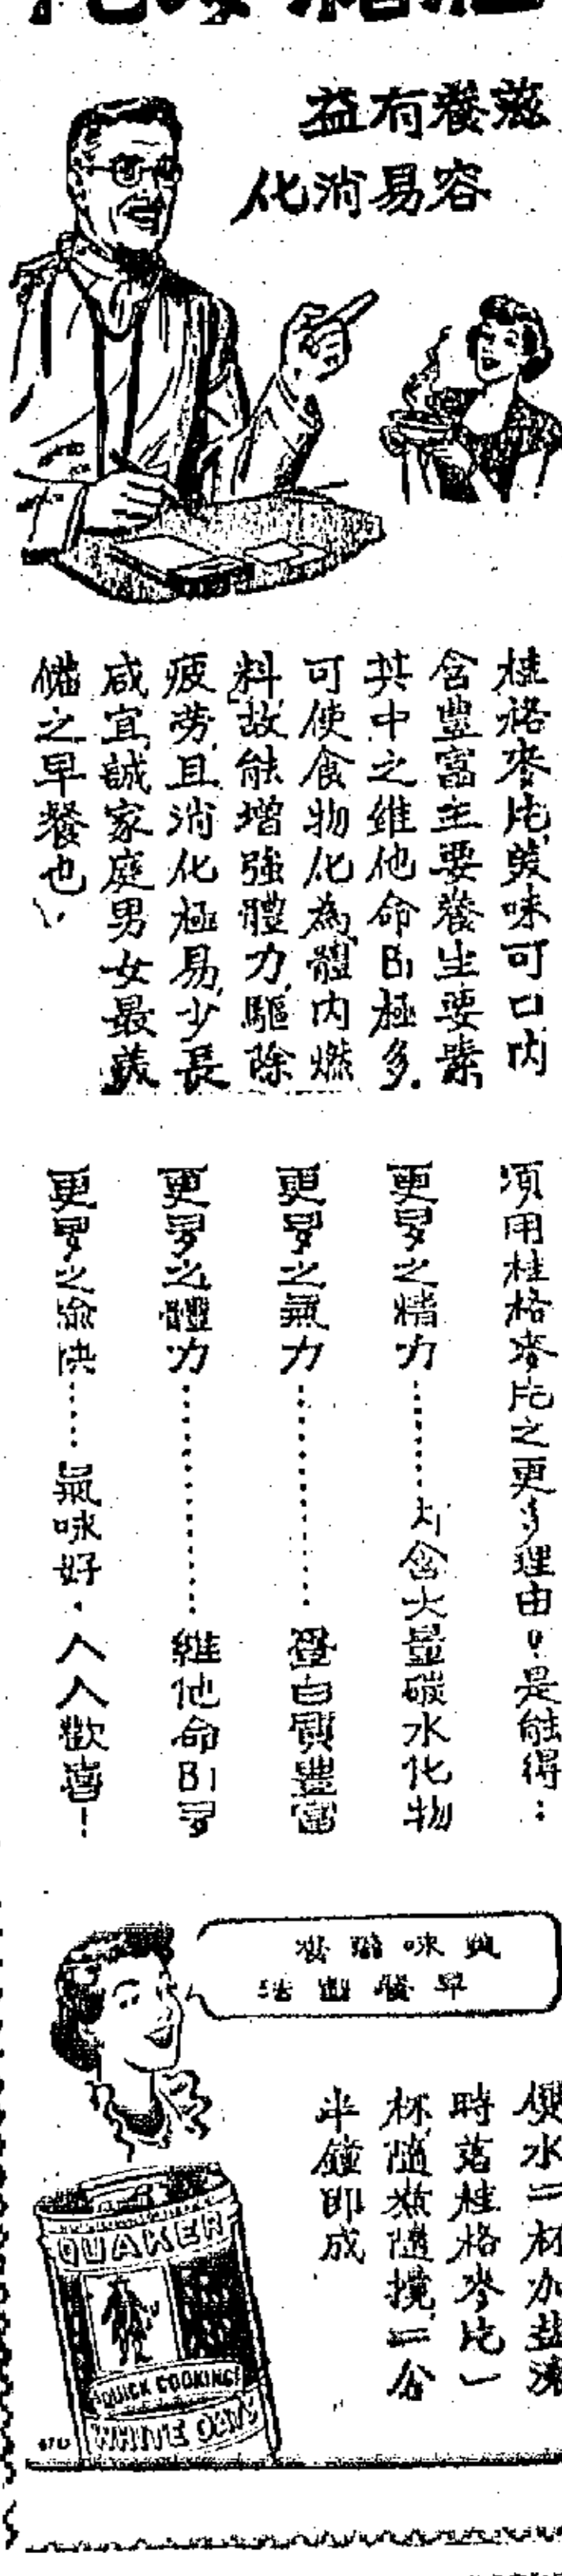 滋養有益
容易消化
桂格麥片,美味可口,内
含豐富主要養生要素,
其中之維他命B1極多.
可使食物化為體内燃
料,故能增強體力,驅除
疲勞,且消化極易,少長
咸宜,誠家庭男女最美
備之早餐也、
須用桂格麥片之更多理由!是能得:
更多之精力………內含大量碳水化物
更多之氣力………蛋白質豐富
更多之體力………維他命B1多
更多之愉快……氣味好.人人歡喜!
美味滋養
早餐
便水二杯加盐滾
時落桂格麥片一
杯,隨煮隨攪,二分
半鐘即成
QUAKER
QUICK COOKING
WHITE OATS